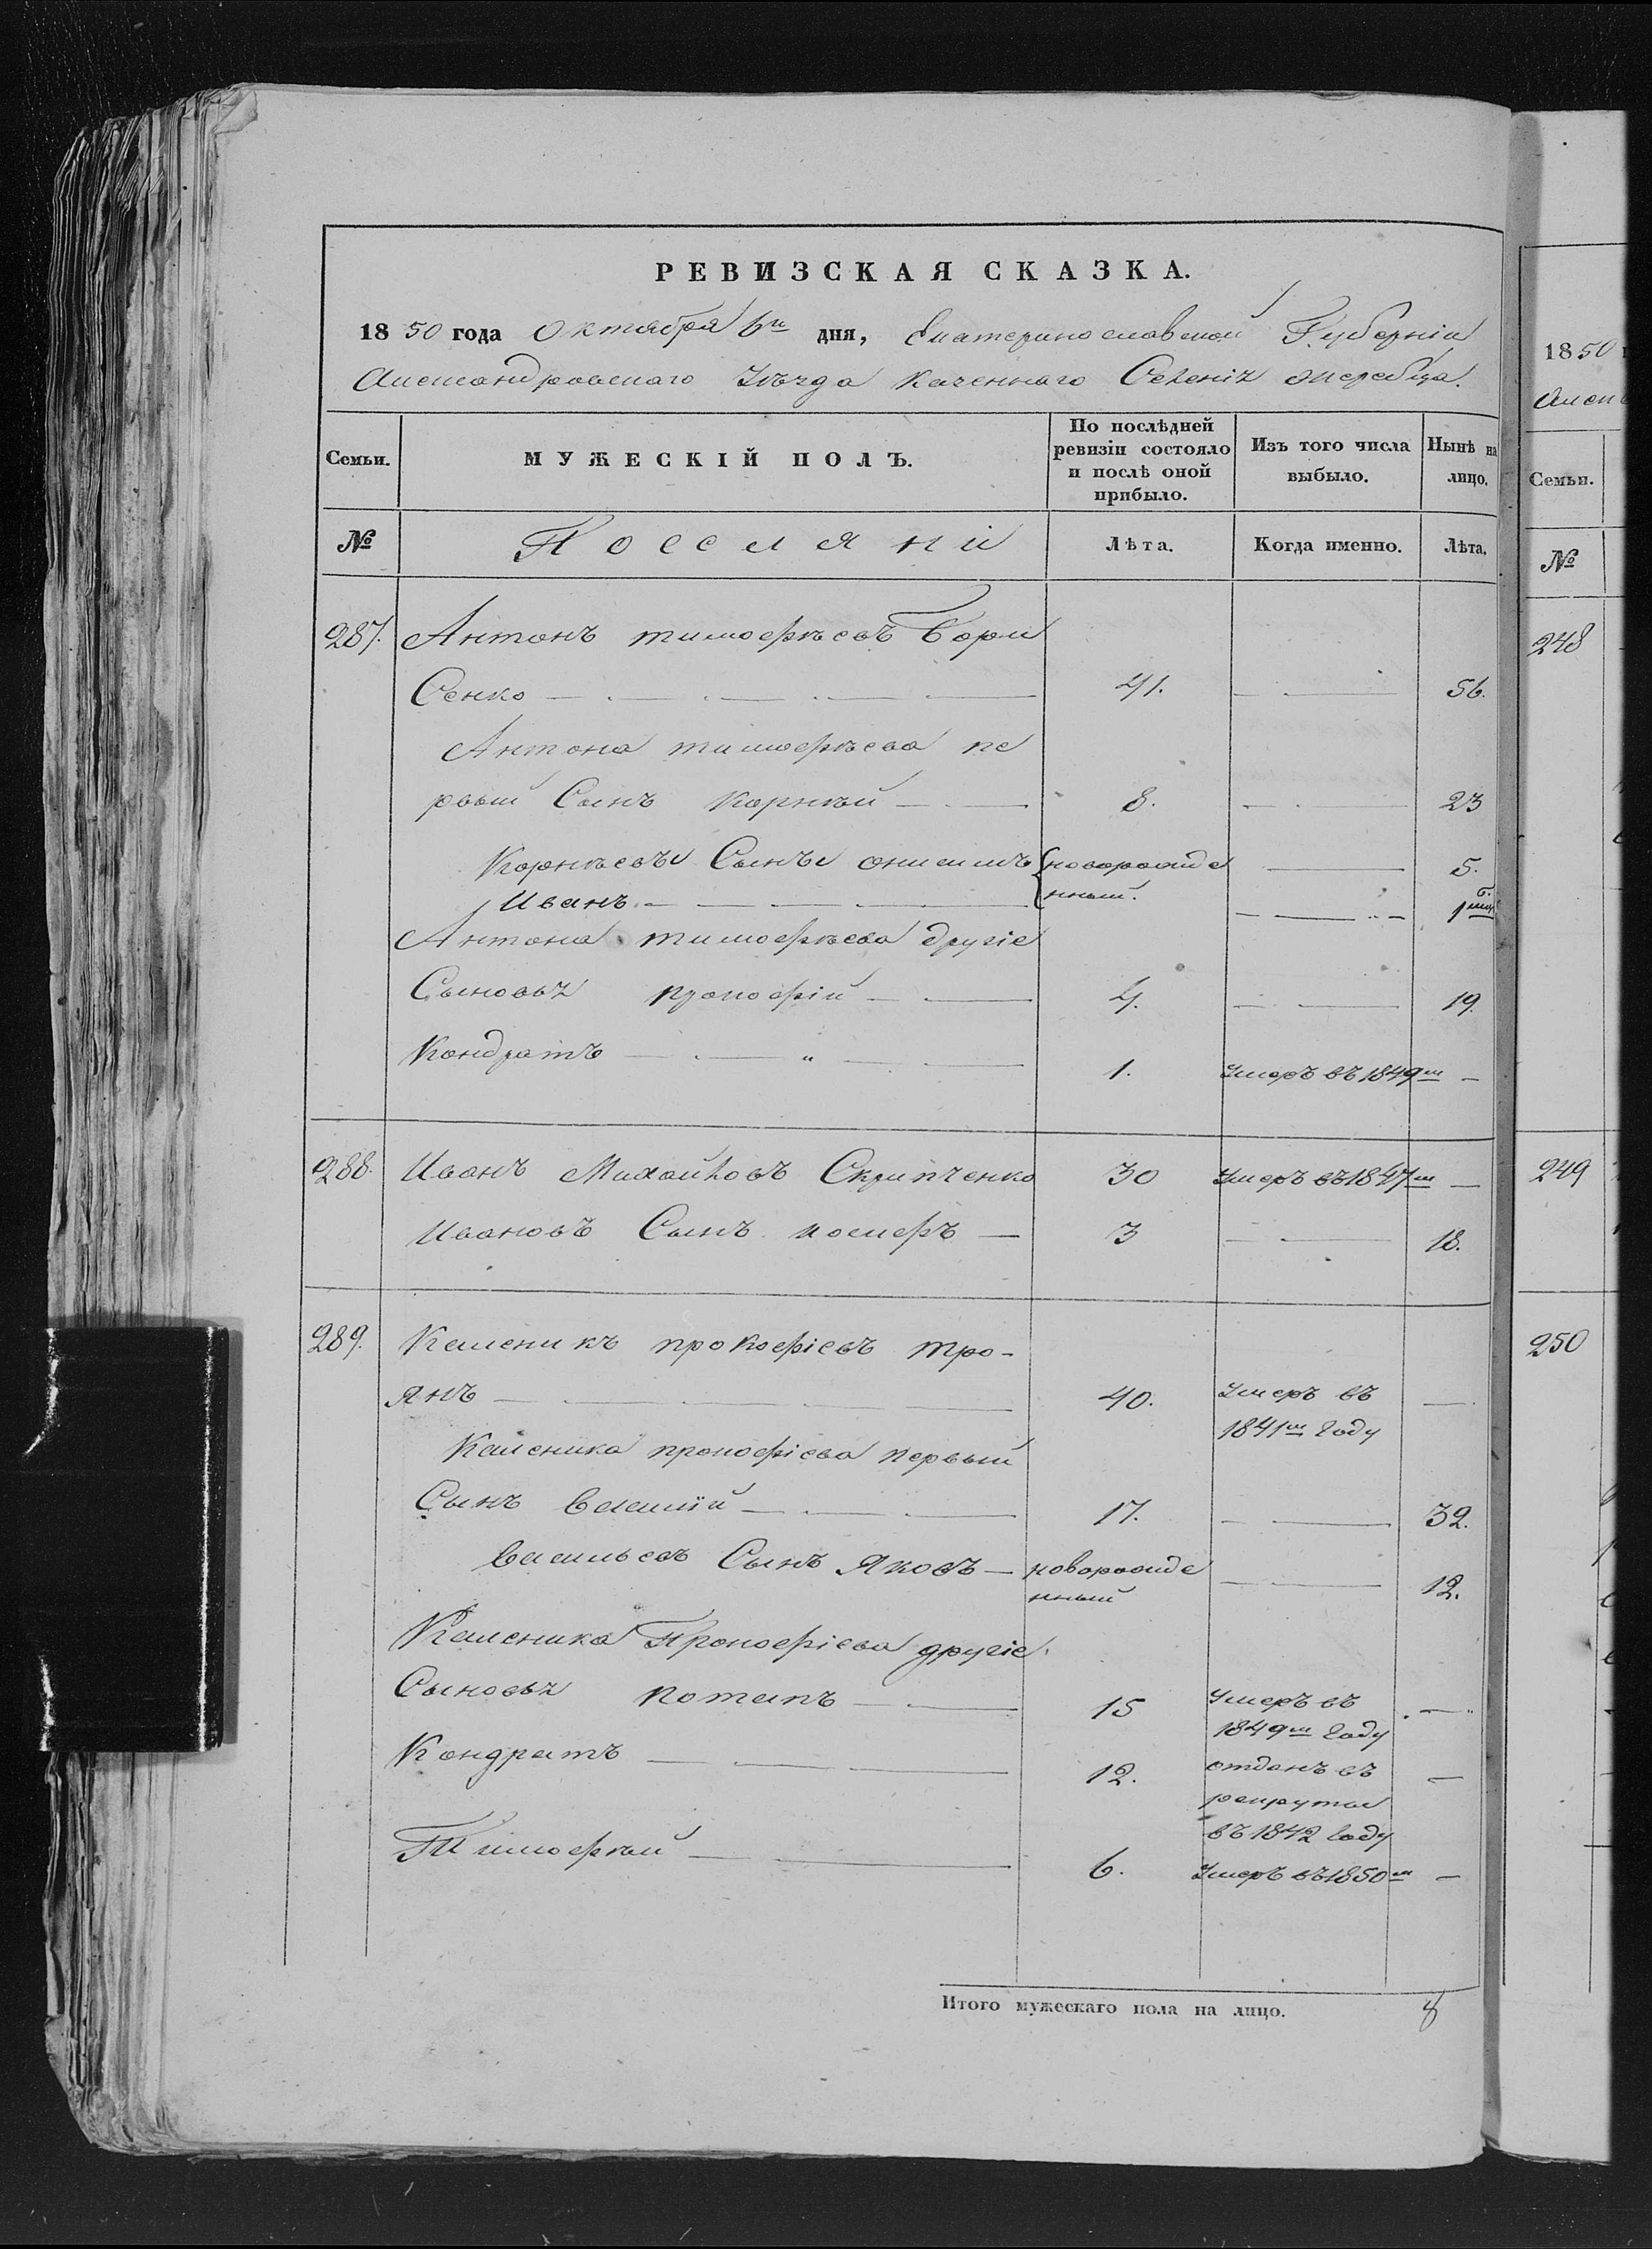 РЕВИЗСКАЯ СКАЗКА.
1850 года Октября 6го дня, Екатеринославской Губерніи
Александровскаго Уѣзда казеннаго Селенія Жеребца.
Семьи. МУЖЕСКІЙ ПОЛЪ. По послѣдней ревизіи состояло и послѣ оной прибыло. Изъ того числа выбыло. Нынѣ на лицо.
№ Поселяни Лѣта. Когда именно. Лѣта.
287. Антонъ тимофѣевъ Бори
Сенко — 41. — 56.
Антона тимофѣева пе
рвый Сынъ Корнѣй — 8. — 23
Корнѣевы Сынъи онисимъ новорожде — 5.
Иванъ — нный. — 1
Антона тимофѣева другіе
Сыновья прокофій — 4. — 19.
Кондратъ — 1. Умеръ въ 1849м —
288. Иванъ Михайловъ Скрипченко 30 Умеръ въ 1847м —
Ивановъ Сынъ иосифъ — 3 — 18.
289. Каленикъ прокофіевъ тро-
янъ — 40. Умеръ въ —
1841м Году
Каленика прокофіева первый
Сынъ Василій — 17. — 32.
Васильевъ Сынъ Яковъ — новорожде — 12.
нный
Каленика Прокофіева другіе
Сыновья потапъ — 15 Умеръ въ —
1849м Году
Кондратъ — 12. отданъ въ —
рекруты
въ 1842 Году
Тимофѣй — 6. Умеръ въ 1850м —
Итого мужескаго пола на лицо. 8
1850
Алек
Семьи.
№
248
249
250